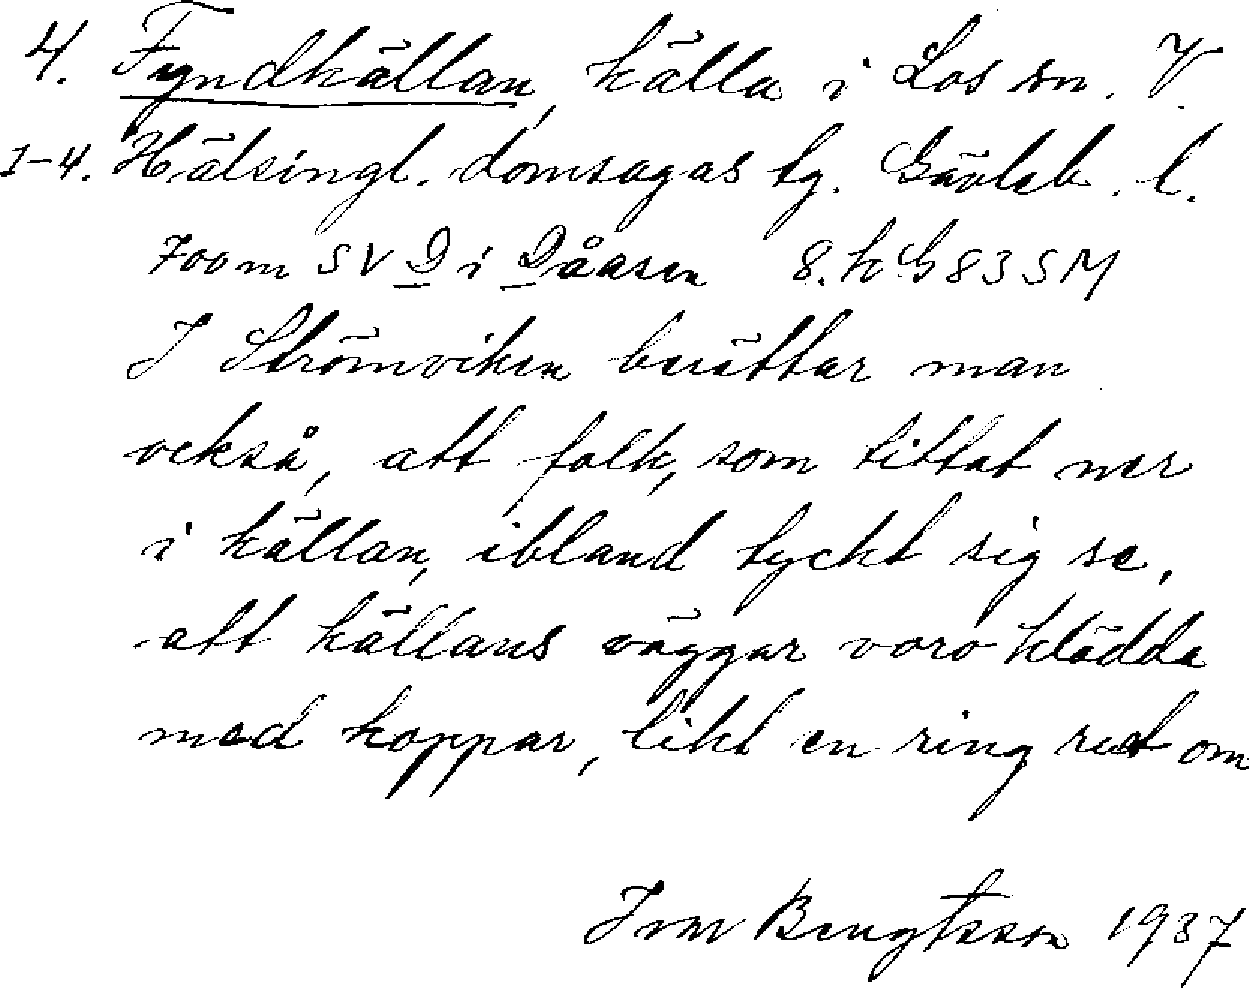 4. Fyndkällan, källa i Los sn. V.
1-4. Hälsingl. domsagas tg. Gävleb. l.
700 m SV D i Dåasen 8. h G 83 SM
I Strömviken berättar man
också, att folk, som tittat ner
i källan, ibland tyckt sig se,
att källans väggar voro klädda
med koppar, likt en ring runt om
Ivar Bengtsson 1937